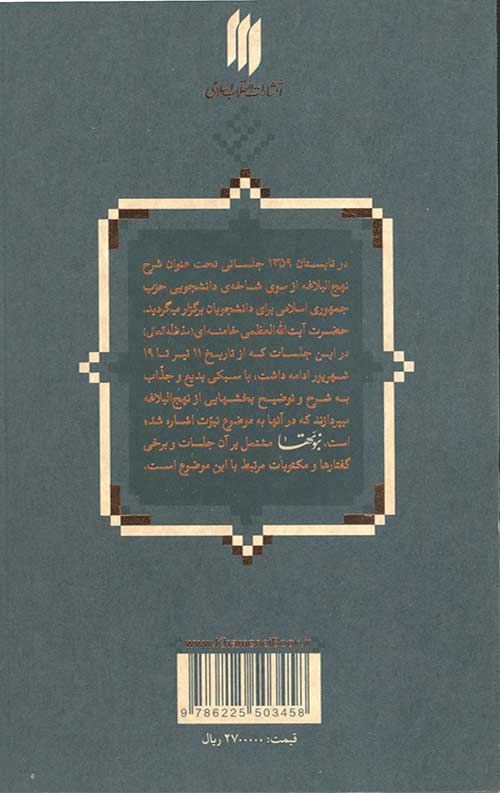 انتشارات انقلاب اسلامی
در تابستان ۱۳۵۹ جلساتی تحت عنوان شرح
نهج‌البلاغه از سوی شاخه‌ی دانشجویی حزب
جمهوری اسلامی برای دانشجویان برگزار میگردید.
حضرت آیت‌الله‌العظمی خامنه‌ای (مدّظلّه‌تعالی)
در این جلسات که از تاریخ ۱۱ تیر تا ۱۹
شهریور ادامه داشت، با سبکی بدیع و جذّاب
به شرح و توضیح بخشهایی از نهج‌البلاغه
میپردازند که در آنها به موضوع نبوّت اشاره شده
است. نبوّتها مشتمل بر آن جلسات و برخی
گفتارها و مکتوبات مرتبط با این موضوع است.
www.KhameneiBook.ir
9 786225 503458
قیمت: ۲۷۰۰۰۰۰ ریال